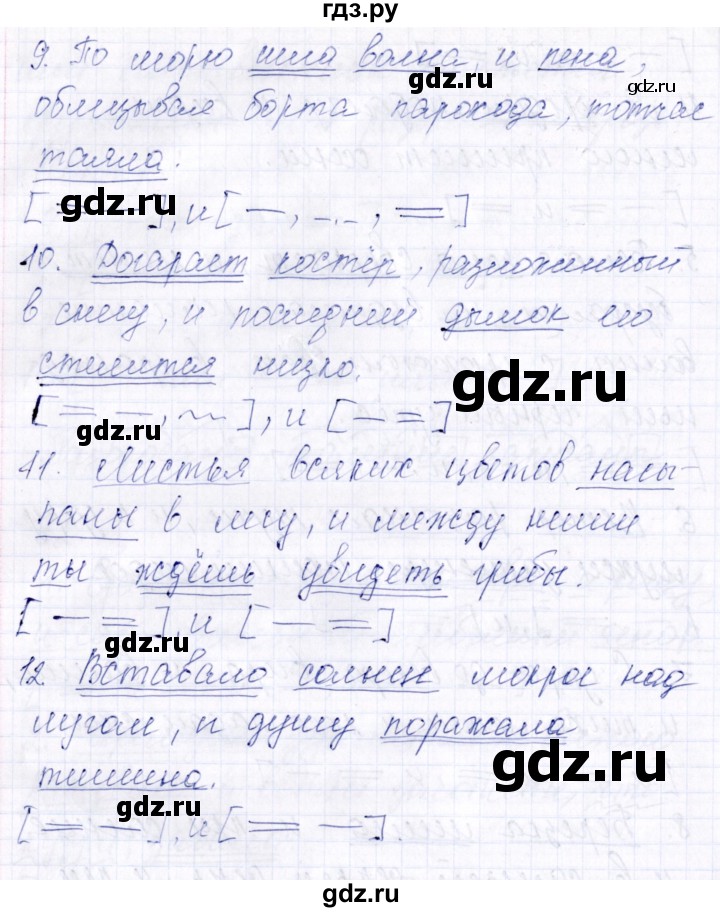 гдз.ру
9. По морю шла волна и пена,
gdz.ru
gdz.ru
облизывая борта парохода, тотчас
таяла.
[= —], и [—, _._ , =]
gdz.ru
10. Догарает костёр, разложенный
в снегу, и последний дымок его
стелится низко.
gdz.ru
[= —, ~~], и [— =]
gdz.ru
11. Листья всяких цветов насы-
паны в лесу, и между ними
ты ждёшь увидеть грибы.
[— =], и [— =]
gdz.ru
12. Вставало солнце мокрое над
лугом, и душу поражала
тишина.
gdz.ru
[= —], и [= —].
gdz.ru
gdz.ru